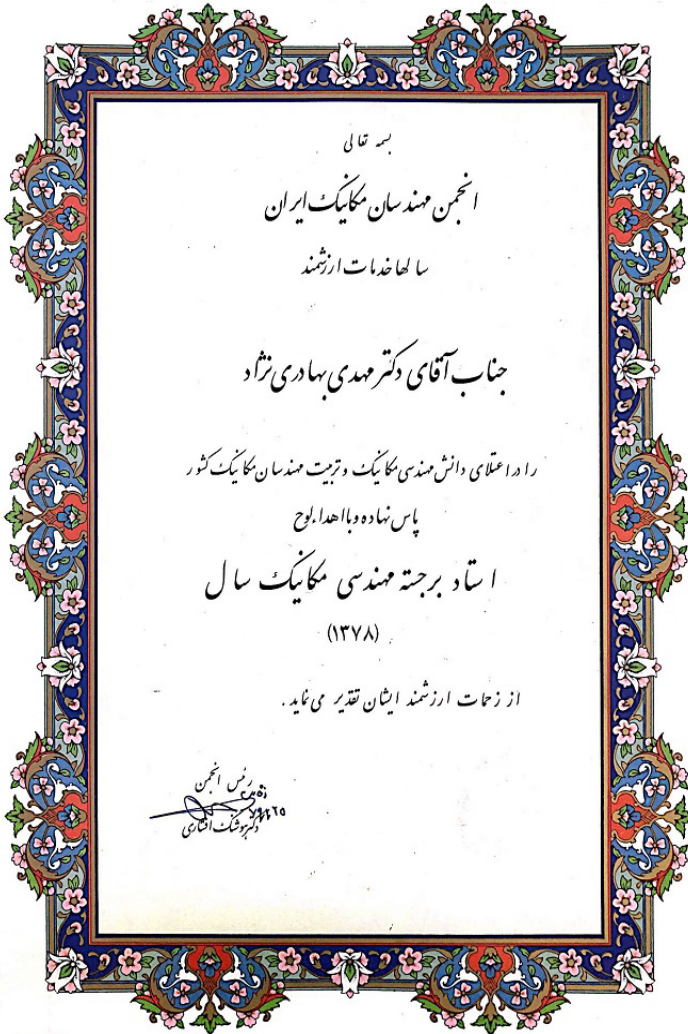 بسمه تعالی
انجمن مهندسان مکانیک ایران
سالها خدمات ارزشمند
جناب آقای دکتر مهدی بهادری نژاد
را در اعتلای دانش مهندسی مکانیک و تربیت مهندسان مکانیک کشور
پاس نهاده و با اهداء لوح
استاد برجسته مهندسی مکانیک سال
(۱۳۷۸)
از زحمات ارزشمند ایشان تقدیر می نماید .
رئیس انجمن
دکتر هوشنگ افشاری